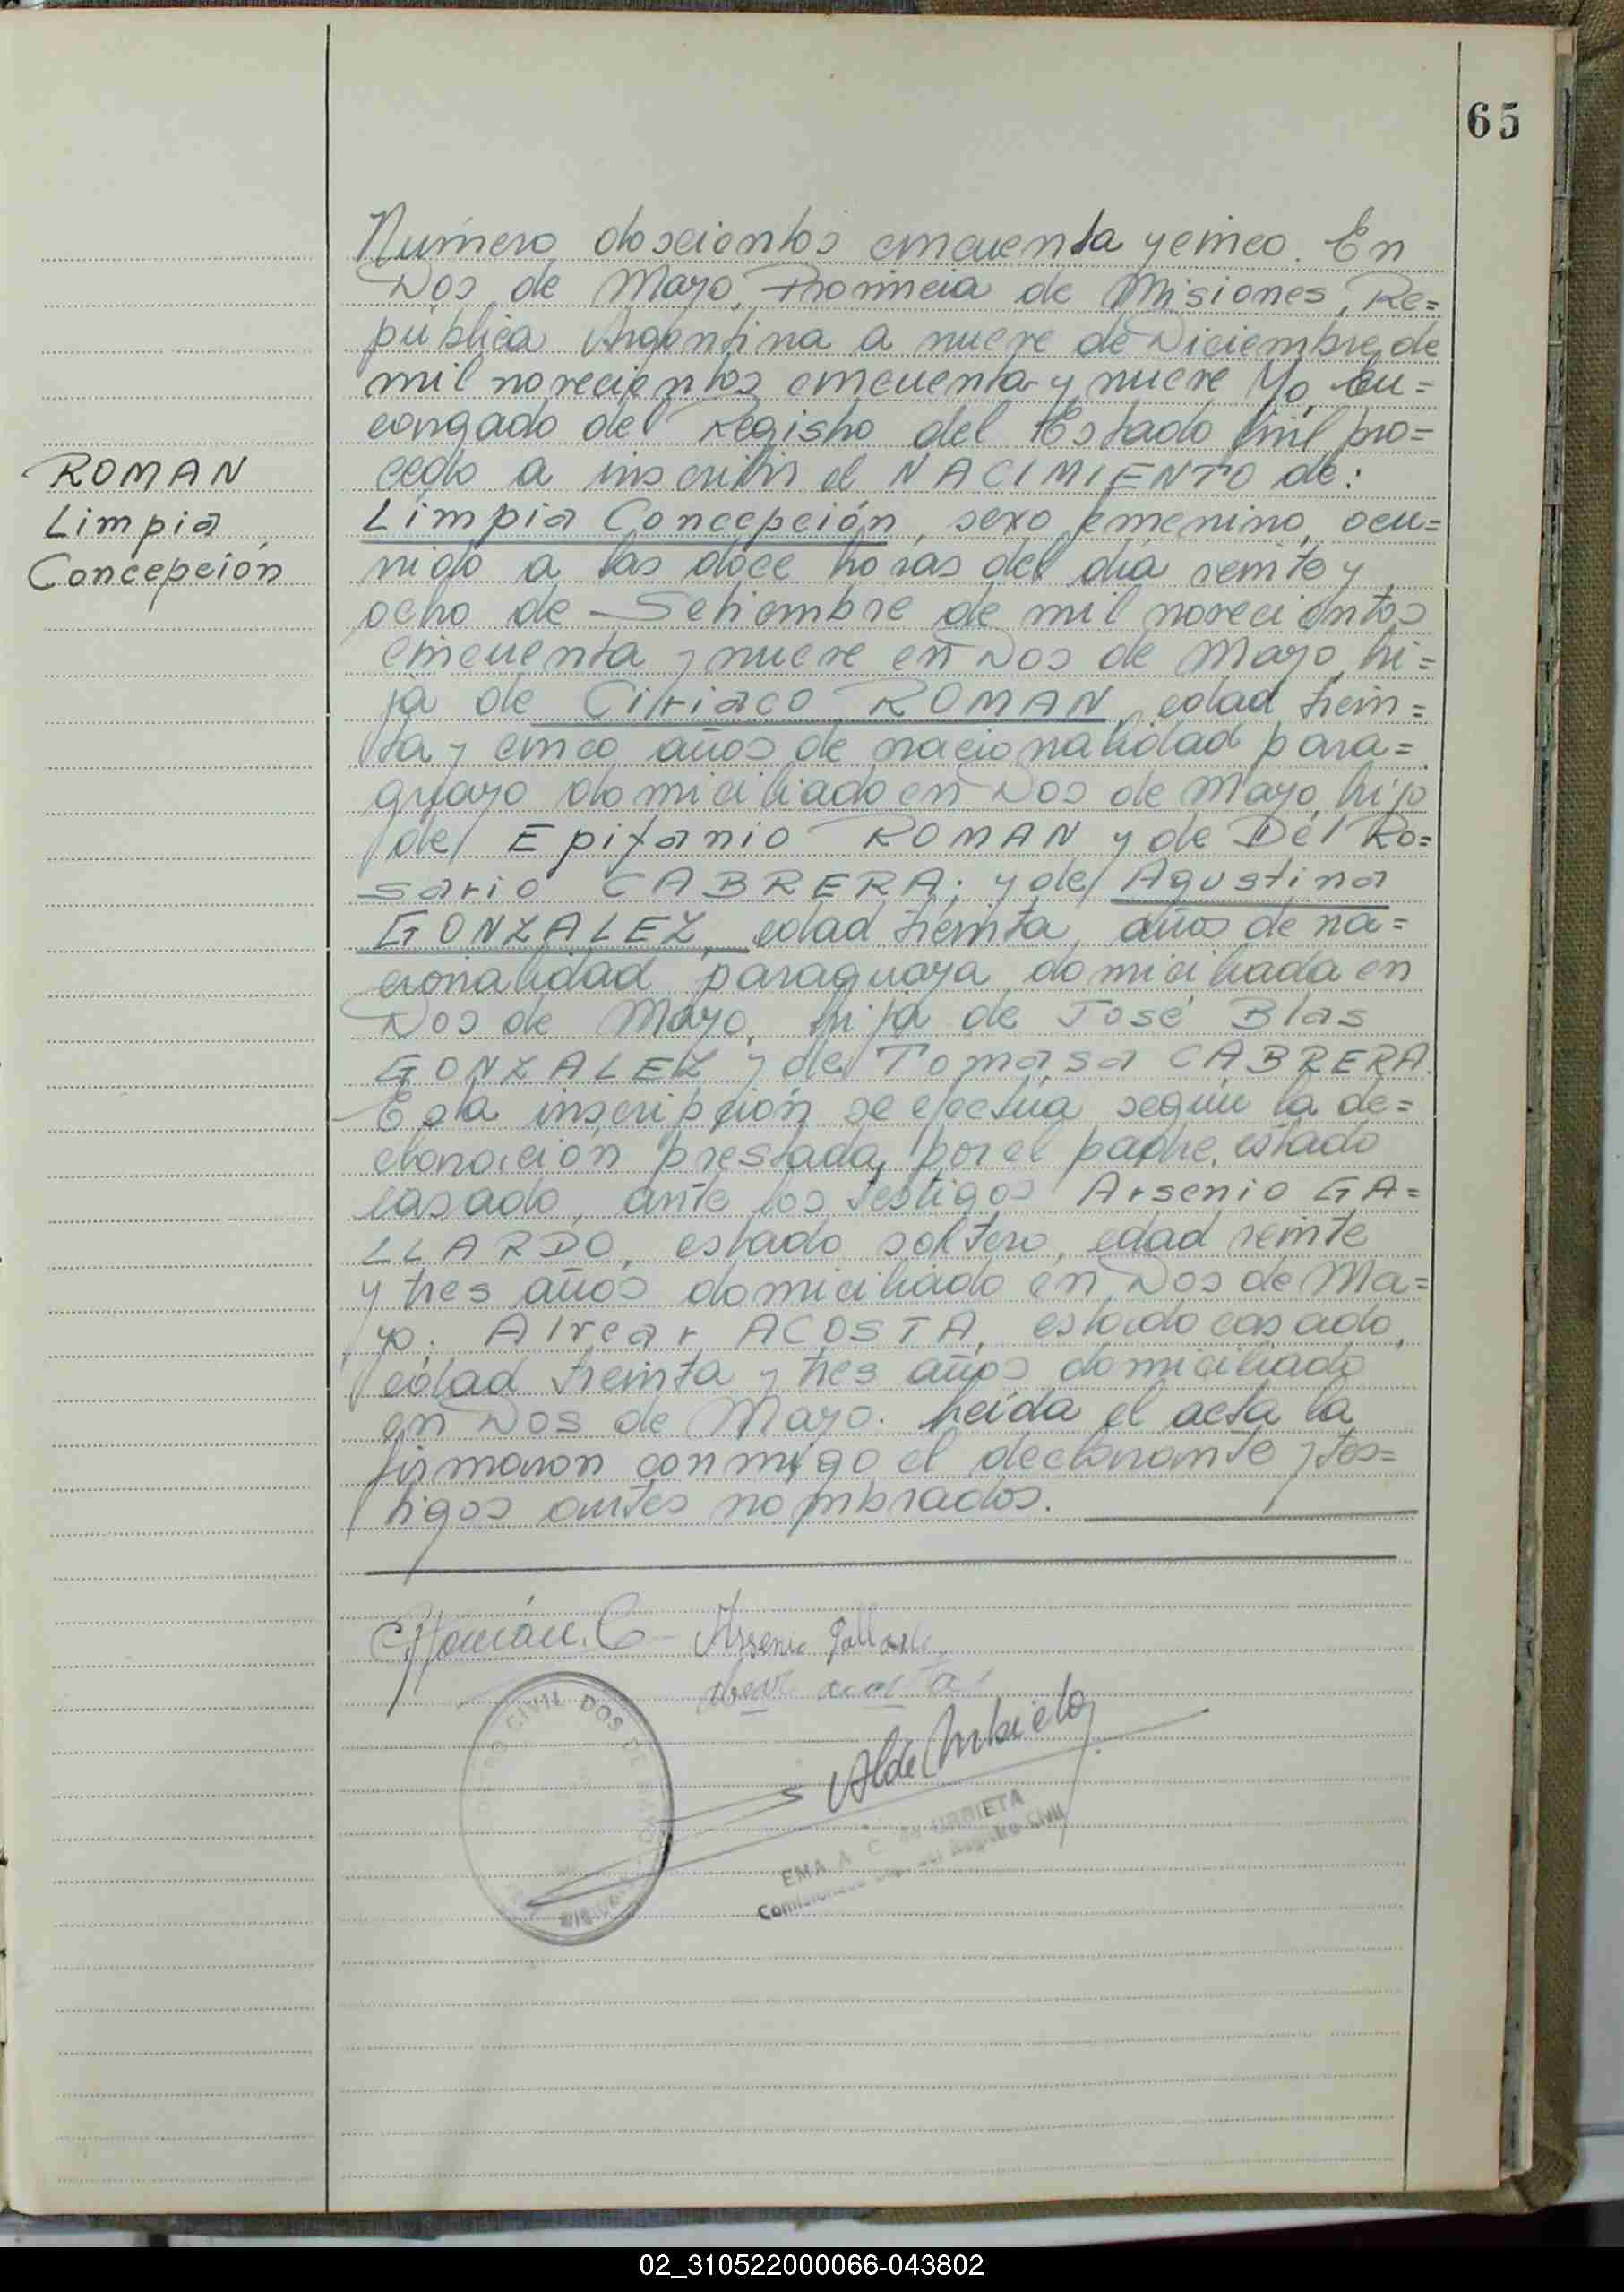 65
Número doscientos cincuenta y cinco. En
Dos de Mayo, Provincia de Misiones, Re=
pública Argentina a nueve de Diciembre de
mil novecientos cincuenta y nueve Yo, en=
cargado del Registro del Estado Civil pro=
cedo a inscribir el NACIMIENTO de:
ROMAN
Limpia
Concepción
Limpia Concepción, sexo femenino, ocu=
rrido a las doce horas del día veinte y
ocho de Setiembre de mil novecientos
cincuenta y nueve en Dos de Mayo, hi=
ja de Ciriaco ROMAN, edad trein=
ta y cinco años de nacionalidad para=
guayo domiciliado en Dos de Mayo, hijo
de Epifanio ROMAN y de Del Ro=
sario CABRERA; y de Agustina
GONZALEZ, edad treinta, años de na=
cionalidad paraguaya domiciliada en
Dos de Mayo, hija de José Blas
GONZALEZ y de Tomasa CABRERA.
Esta inscripción se efectúa según la de=
claración prestada por el padre, estado
casado, ante los testigos Arsenio GA=
LLARDO, estado soltero, edad veinte
y tres años domiciliado en Dos de Ma=
yo. Alvear ACOSTA, estado casado,
edad treinta y tres años domiciliado
en Dos de Mayo. Leída el acta la
firmaron conmigo el declarante y tes=
tigos antes nombrados.
Román. C Arsenio Gallardo
acosta
CIVIL DOS DE MAYO
EMA A. C. de URBIETA
del Registro Civil
02_310522000066-043802